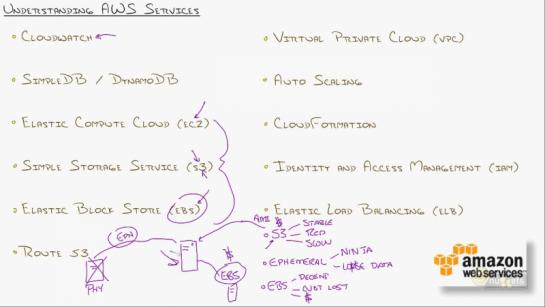 Understanding AWS Services
• Cloudwatch
• SimpleDB / DynamoDB
• Elastic Compute Cloud (EC2)
• Simple Storage Service (S3)
• Elastic Block Store (EBS)
• Route 53
• Virtual Private Cloud (VPC)
• Auto Scaling
• CloudFormation
• Identity and Access Management (IAM)
• Elastic Load Balancing (ELB)
AMI
$
• S3
Stable
Red
Slow
• Ephemeral
Ninja
Lo$e Data
• EBS
Decent
Not Lost
$
PHY
$
EBS
amazon
web services